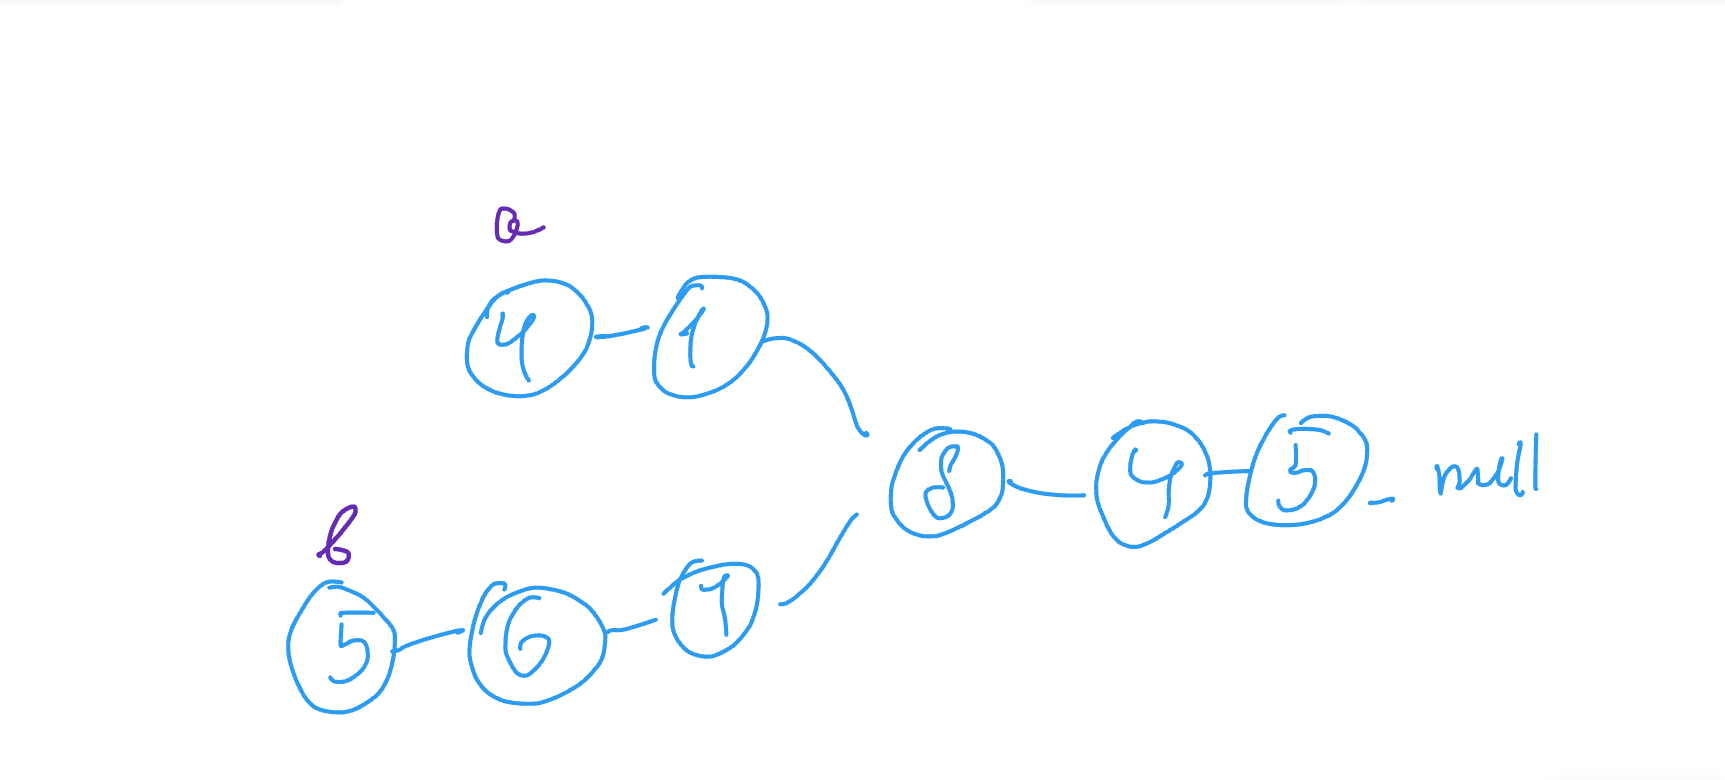 a
4 1
8 4 5 null
b
5 6 1